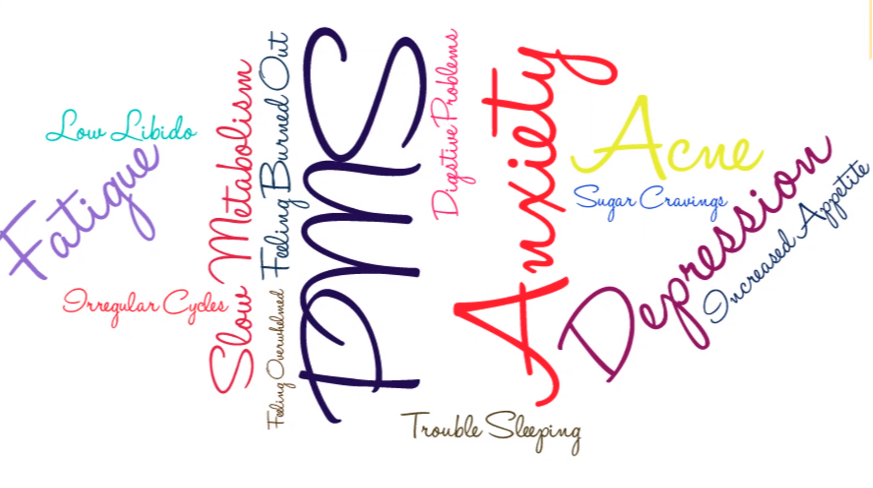 Low Libido
Fatigue
Irregular Cycles
Slow Metabolism
Feeling Burned Out
Feeling Overwhelmed
PMS
Digestive Problems
Anxiety
Trouble Sleeping
Acne
Sugar Cravings
Depression
Increased Appetite